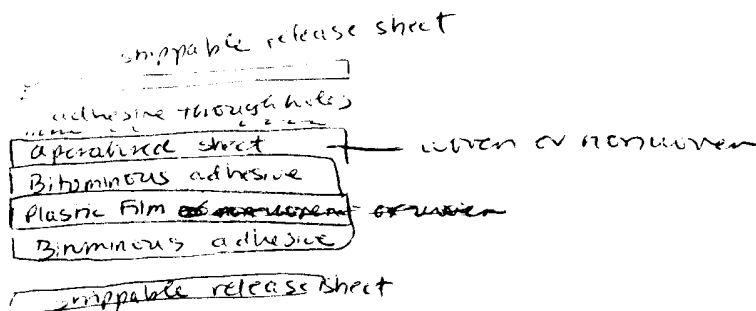 strippable release sheet
adhesive through holes
aperatured sheet woven or nonwoven
Bituminous adhesive
Plastic Film or nonwoven or woven
Bituminous adhesive
strippable release sheet